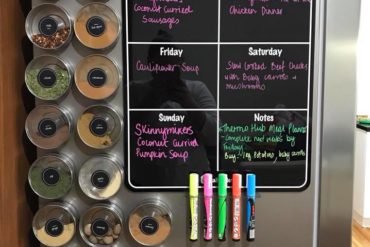 Coconut Curried
Sausages
Chicken Dinner
Friday
Saturday
Cauliflower Soup
Slow Cooked Beef Cheeks
with Baby carrots +
mushrooms
Sunday
Notes
Skinnymixers
Coconut Curried
Pumpkin Soup
Thermo Hub Meal Planner
- Complete meals by
Buy: - Veg, Potatoes, baby carrots